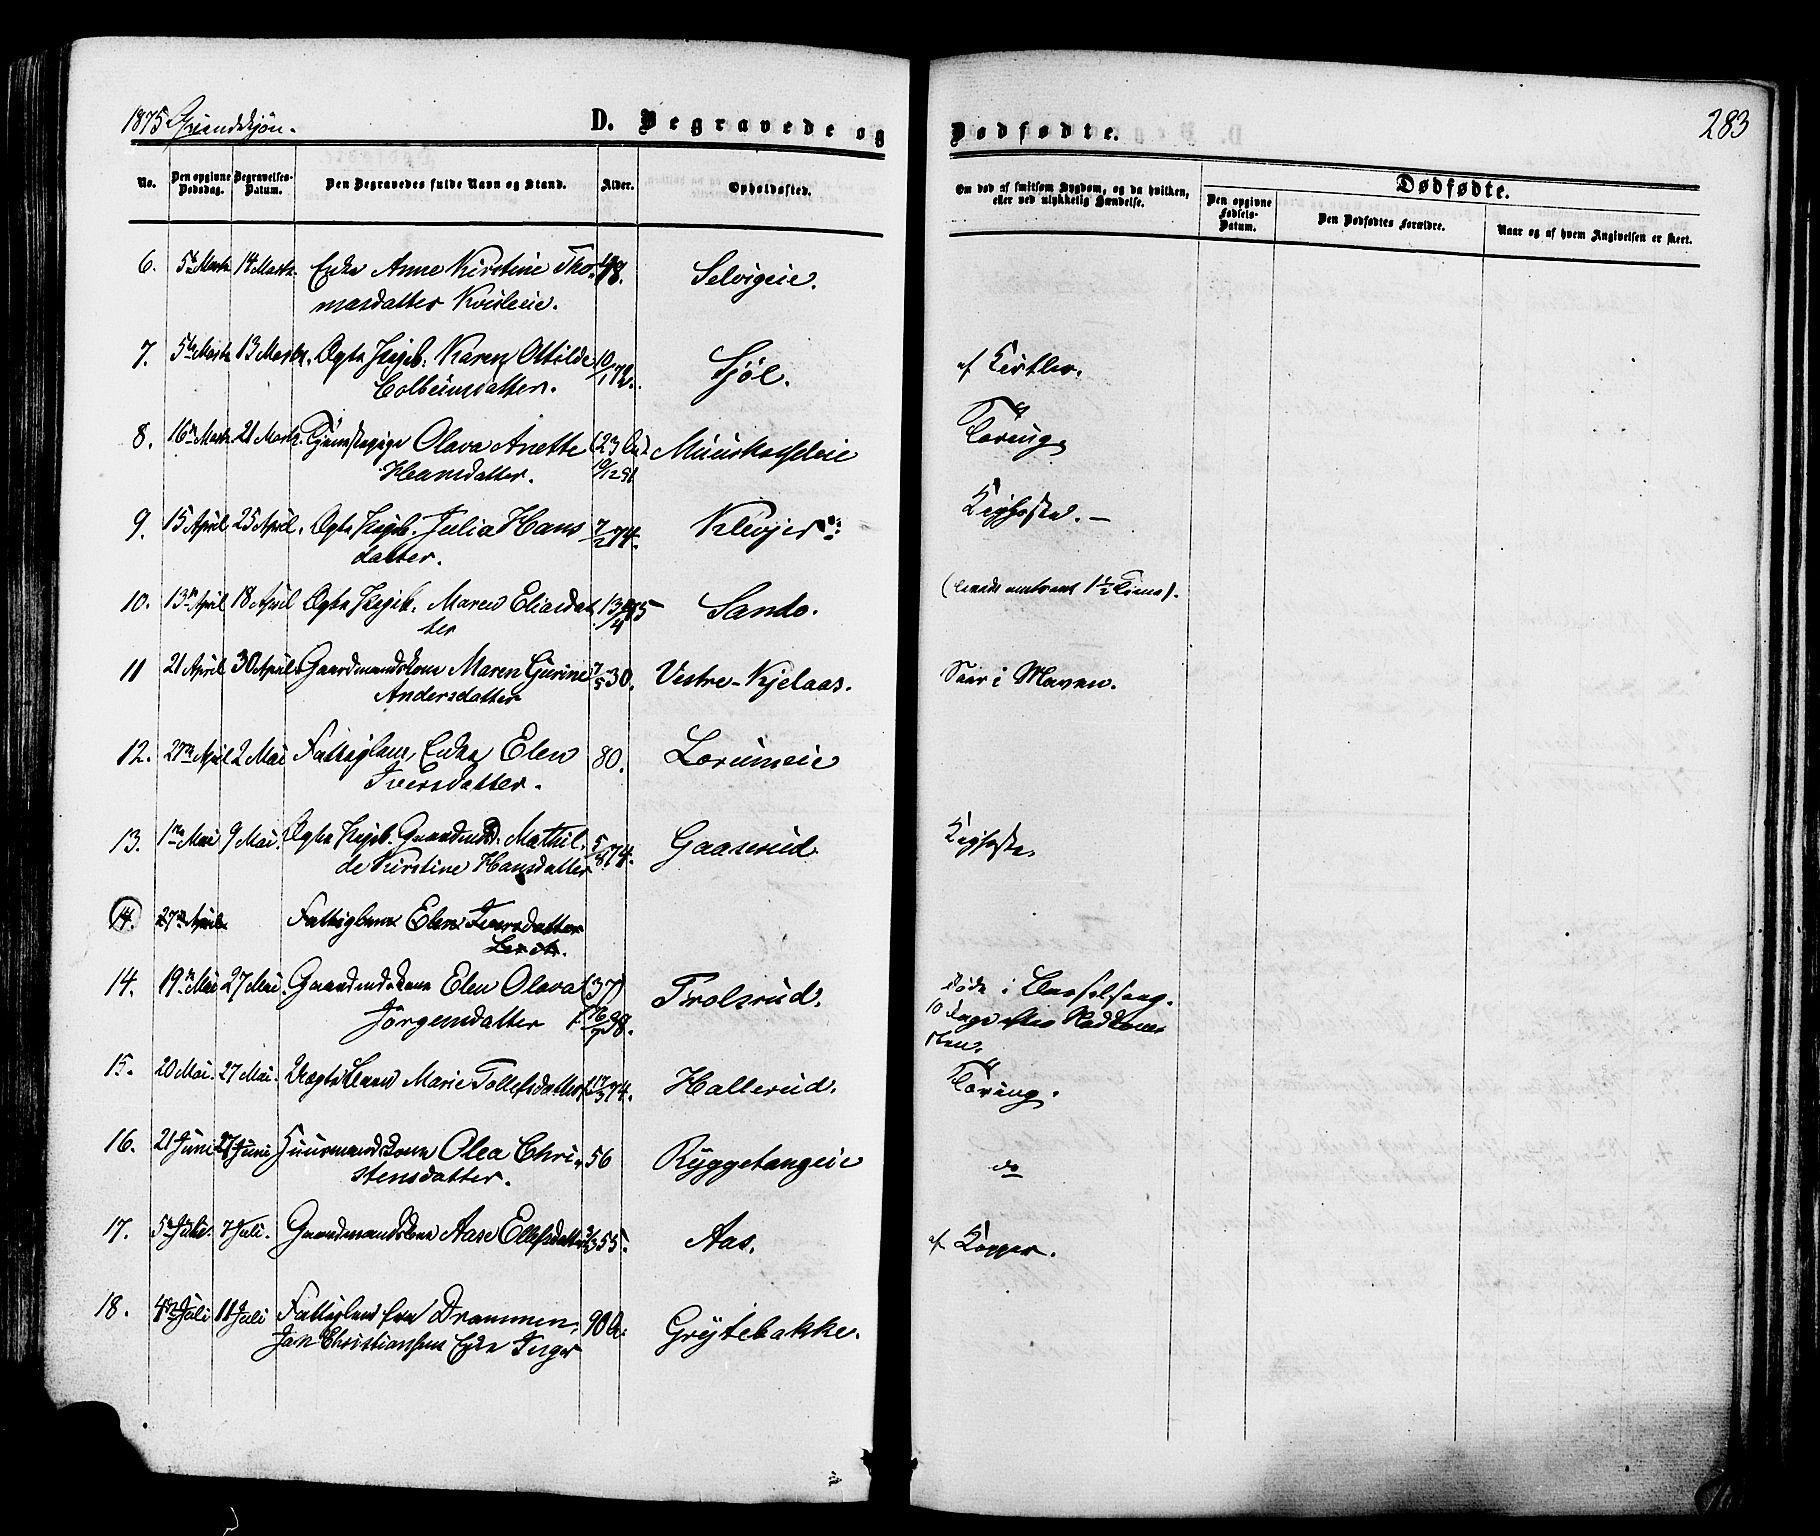 1875 Qvindekjön.
D. Begravede og Dødfødte.
283
No.
Den opgivne Dødsdag.
Begravelses-Datum.
Den Begravedes fulde Navn og Stand.
Alder.
Opholdssted.
Om død af smitsom Sygdom, og da hvilken, eller ved ulykkelig Hændelse.
Dødfødte.
Den opgivne Fødsels-Datum.
Den Dødfødtes Forældre.
Naar og af hvem Angivelsen er skeet.
6. 5te Marts 14 Marts. Enke Anne Kirstine Tho- 48. Selvigeie.
masdatter Kvisleeie.
7. 5te Marts 13 Marts. Ægte Pigeb. Karen Othilde 10/1 72. Sjöl. af Kirtler.
Colbeinsdatter.
8. 16de Marts 21 Marts. Tjenestepige Olava Anette (23 Aar) Muurskogseie Tæring
Hansdatter. 19/12 51
9. 15 April 25 April. Ægte Pigeb. Julia Hans 7/2 74. Klevjer Kighoste. –
datter.
10. 13de April 18 April Ægte Pigeb. Maren Eliasdat 13/4 75 Sando. (levede omtrent 1½ Time).
ter
11 21 April 30 April Gaardmandskone Maren Gurine 7/5 30. Vestre-Kjelaas. Saar i Maven.
Andersdatter
12. 27de April 2 Mai Fattiglem, Enke Elen 80. Lorumeie
Iversdatter.
13. 1ste Mai 9 Mai. Ægte Pigeb. Gaardmd. Mathil- 5/8 74. Gaaserud Kighoste.
de Kirstine Hansdatter
14. 27de April Fattiglem Elen Iversdatter
14. 19de Mai 27 Mai. Gaardmdskone Elen Olava (37) Trolsrud. Døde i Barselseng.
Jörgensdatter 38. 10 Dage efter Nedkomst
sten.
15. 20 Mai. 27 Mai. Uægte Marie Tollefsdatter 74. Hallerud. Tæring.
16. 21 Juni 27 Juni Huusmandskone Olea Chri- 56 Ryggetangeie do
stensdatter.
17. 5te Juli. 7 Juli. Gaardmandskone Aase Ellefsdatter 55. Aas. af Kopper.
18. 4de Juli 11 Juli Fattiglem fra Drammen, 90 A. Grytebakke.
Jak Christiansens Enke Inger